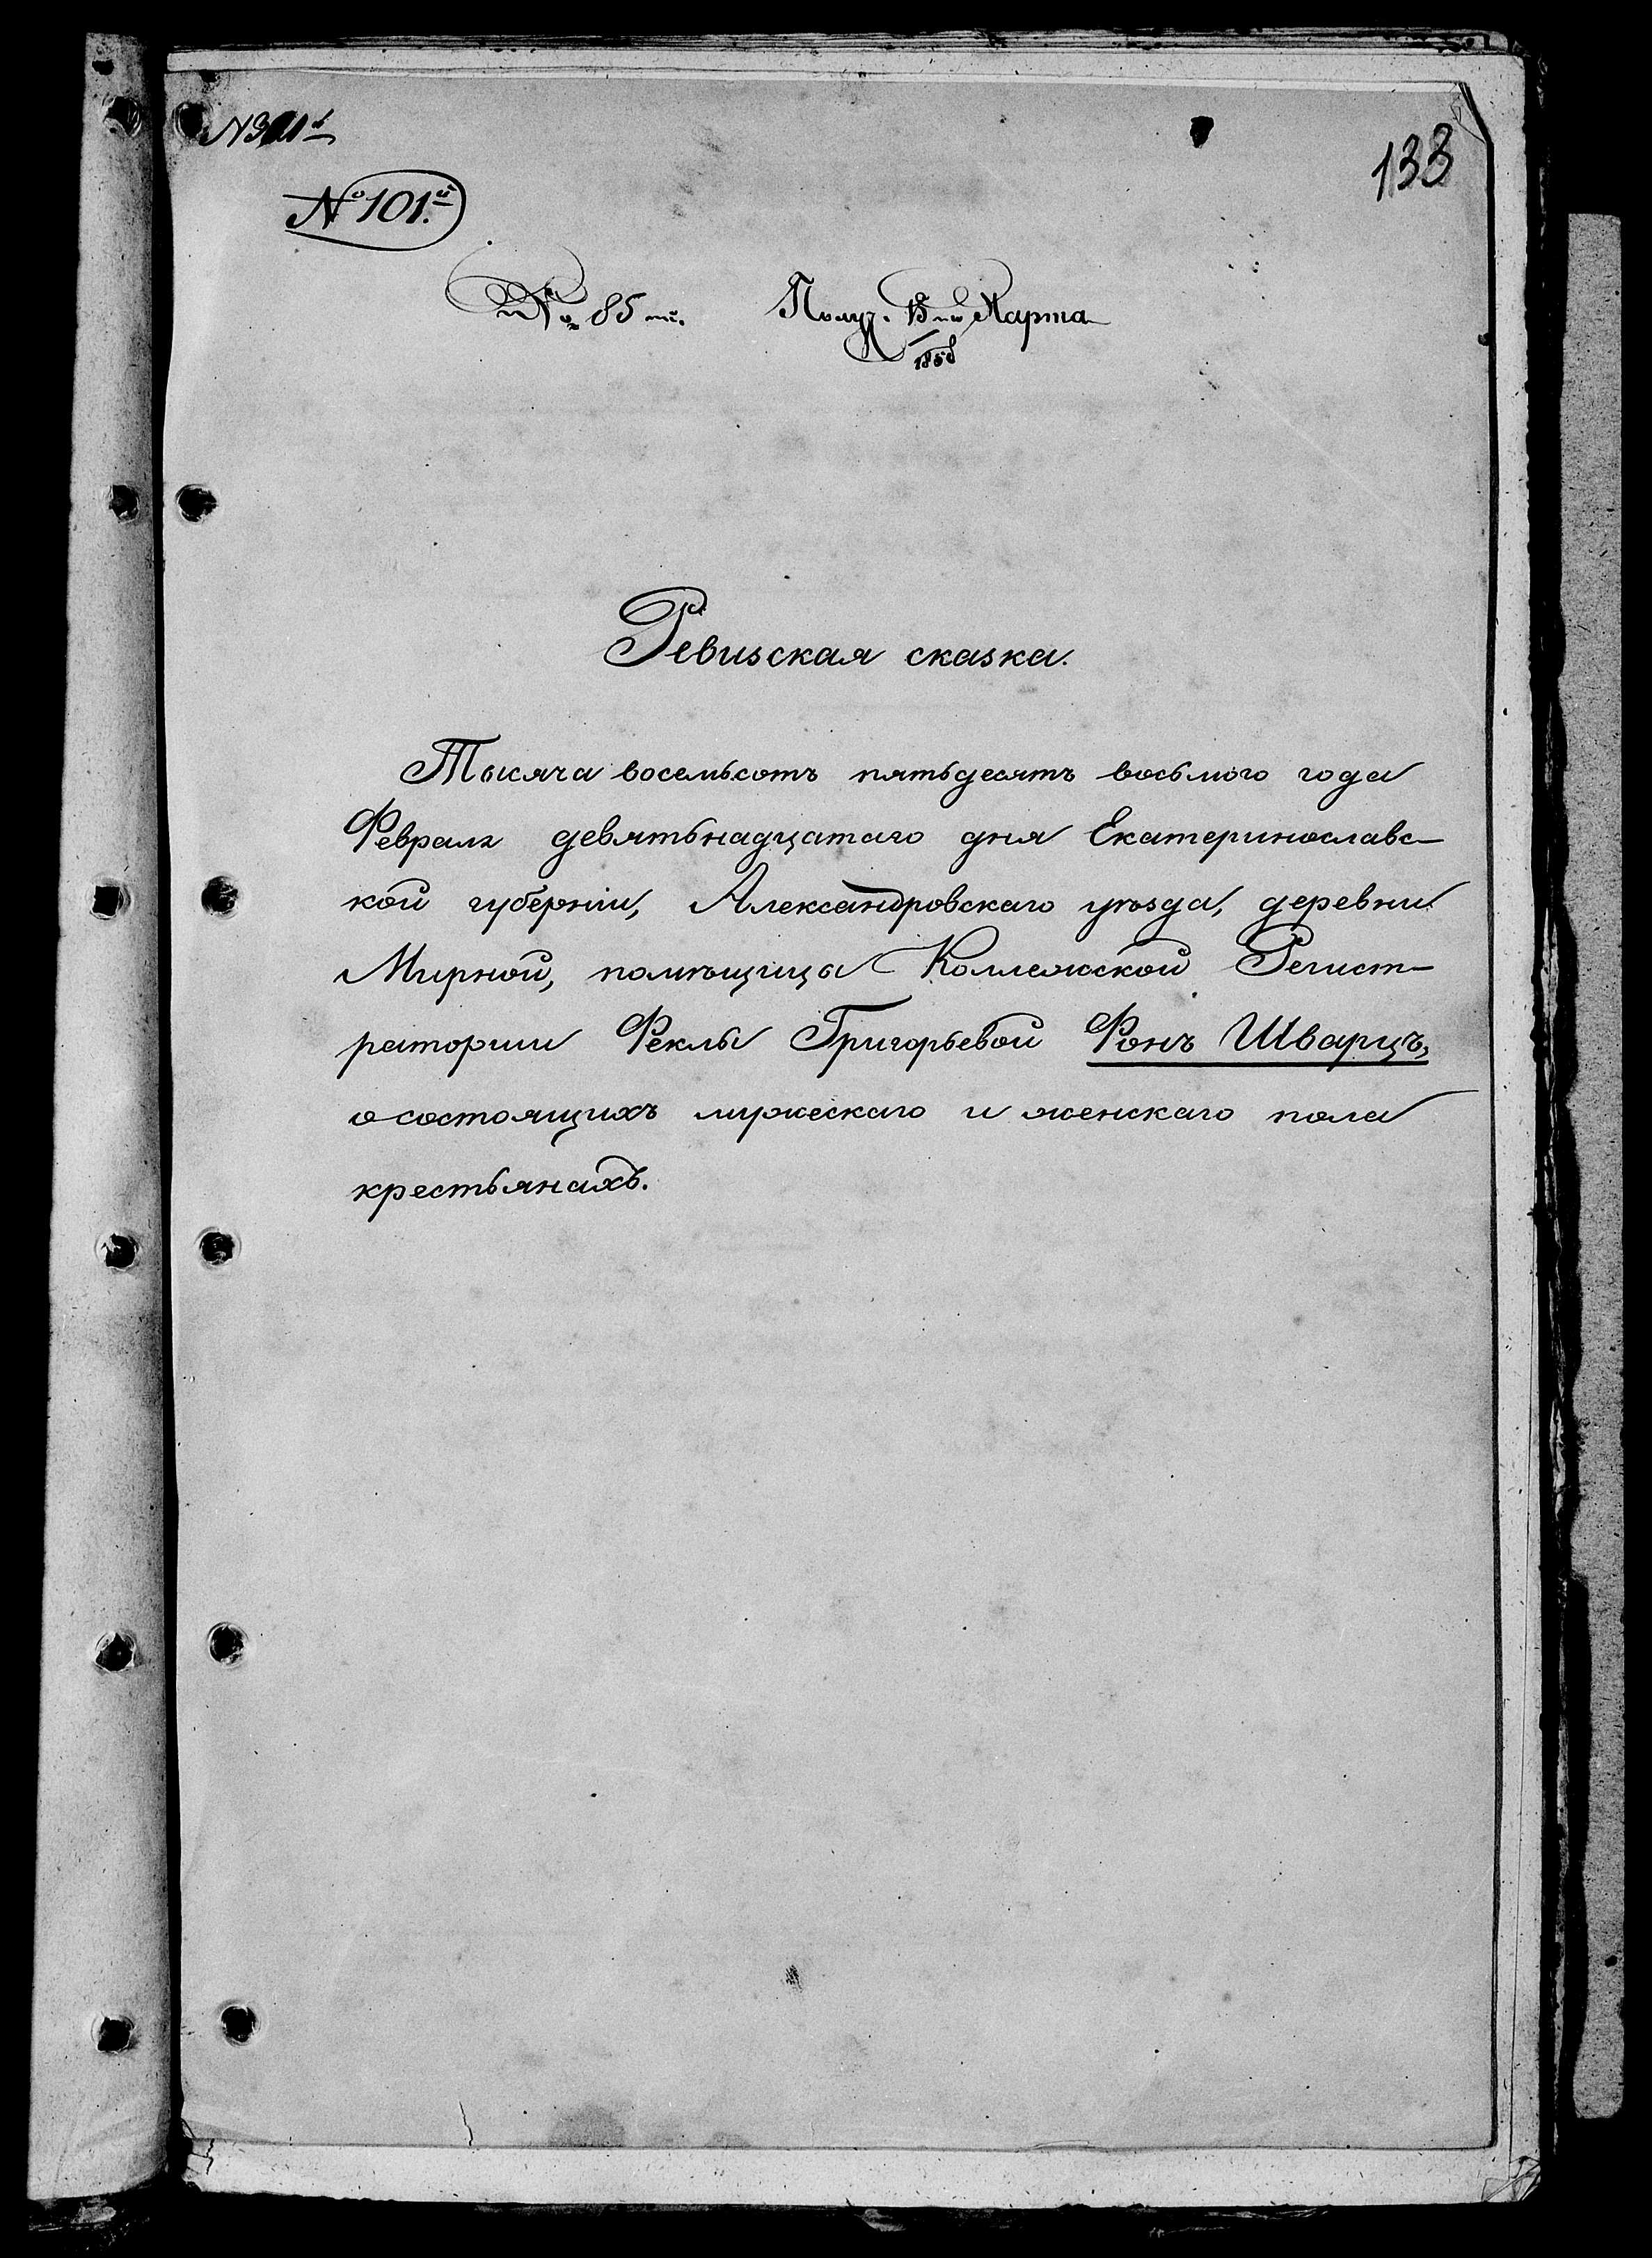 133
№ 101.й
№ 85 ый. Получ. 15го Марта
1858
Ревизская сказка.
Тысяча восемьсотъ пятьдесятъ восьмого года
Февраля девятьнадцатаго дня Екатеринославс-
кой губерніи, Александровскаго уѣзда, деревни
Мирной, помѣщицы Коллежской Регист-
раторши Феклы Григорьевой Фонъ Шварцъ,
о состоящихъ мужескаго и женскаго пола
крестьянахъ.